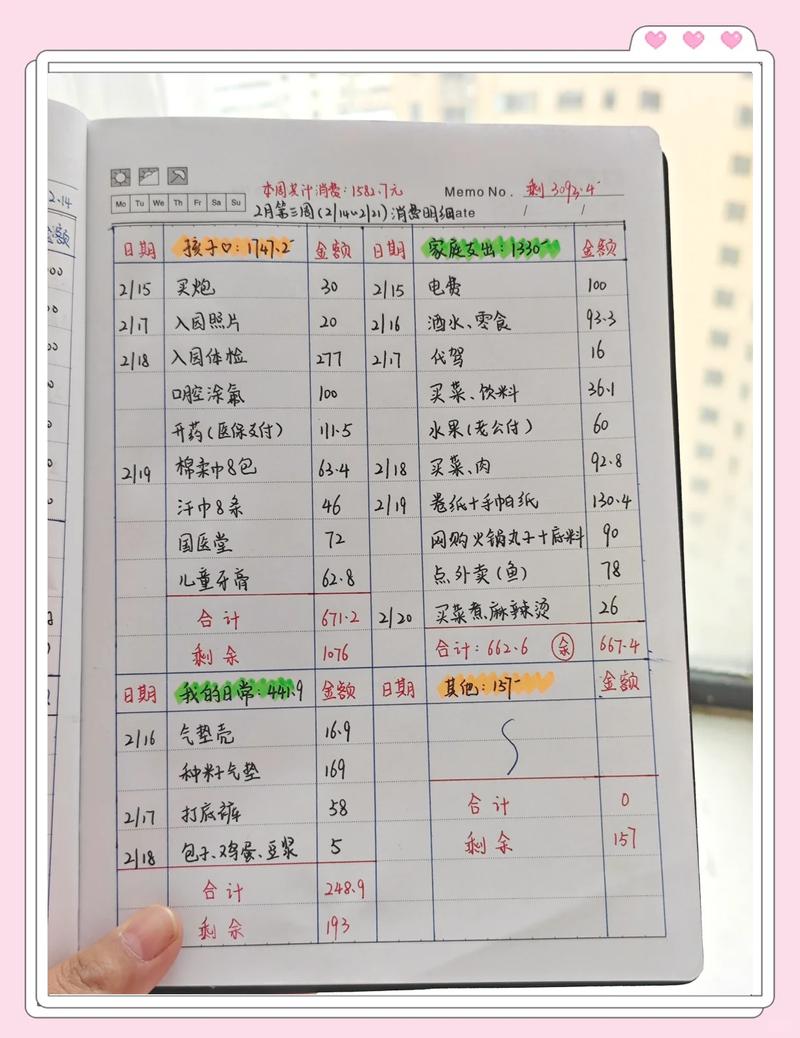 2.14
金额
本周共计消费：1582.7元
Memo No. 剩 3093.4
Mo Tu We Th Fr Sa Su
2月第三周(2/14~2/21)消费明细ate / /
日期 孩子♡：1747.2 金额 日期 家庭支出：1330 金额
2/15 买炮 30 2/15 电费 100
2/17 入园照片 20 2/16 酒水、零食 93.3
2/18 入园体检 277 2/17 代驾 16
口腔涂氟 100 买菜、饮料 36.1
开药(医保支付) 111.5 水果(老公付) 60
2/19 棉柔巾8包 63.4 2/18 买菜、肉 92.8
汗巾8条 46 2/19 卷纸+手帕纸 130.4
国医堂 72 网购火锅丸子+底料 90
儿童牙膏 62.8 点外卖(鱼) 78
合计 671.2 2/20 买菜煮麻辣烫 26
剩余 1076 合计：662.6 余 667.4
日期 我的日常：441.9 金额 日期 其他：157 金额
2/16 气垫壳 16.9
种籽气垫 169
2/17 打底裤 58 合计 0
2/18 包子、鸡蛋、豆浆 5 剩余 157
合计 248.9
剩余 193